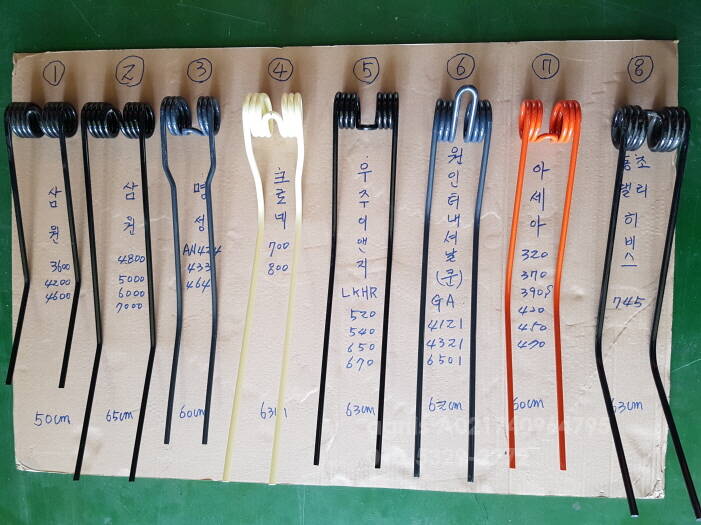 ①
삼
원
3600
4200
4600
50cm
②
삼
원
4800
5000
6000
7000
65cm
③
명
성
AN424
433
464
60cm
④
크
로
네
700
800
63
⑤
우
주
이
앤
지
LKHR
520
540
650
670
63cm
⑥
원
인
터
내
셔
날
(문)
GA
4121
4321
6501
cm
⑦
아
세
아
320
370
390
420
450
470
60cm
⑧
동
조
엘
리
히
비
스
745
63cm